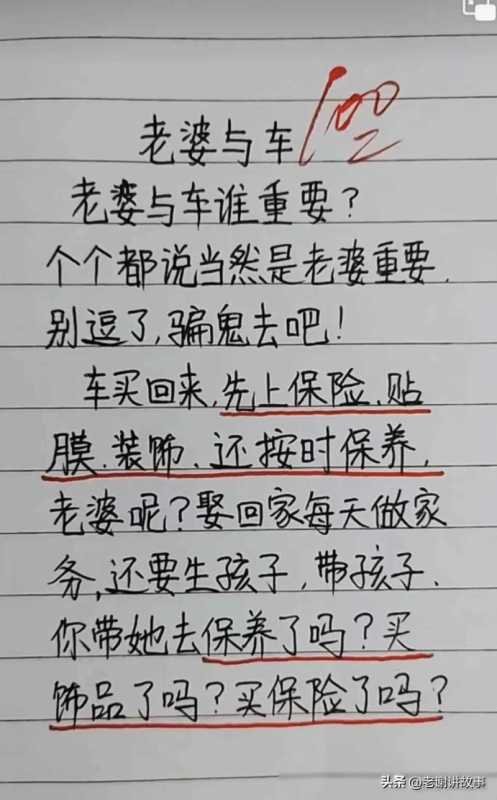 老婆与车
100
老婆与车谁重要？
个个都说当然是老婆重要.
别逗了,骗鬼去吧！
车买回来,先上保险、贴
膜、装饰、还按时保养,
老婆呢？娶回家每天做家
务,还要生孩子,带孩子.
你带她去保养了吗？买
饰品了吗？买保险了吗？
头条 @老谢讲故事